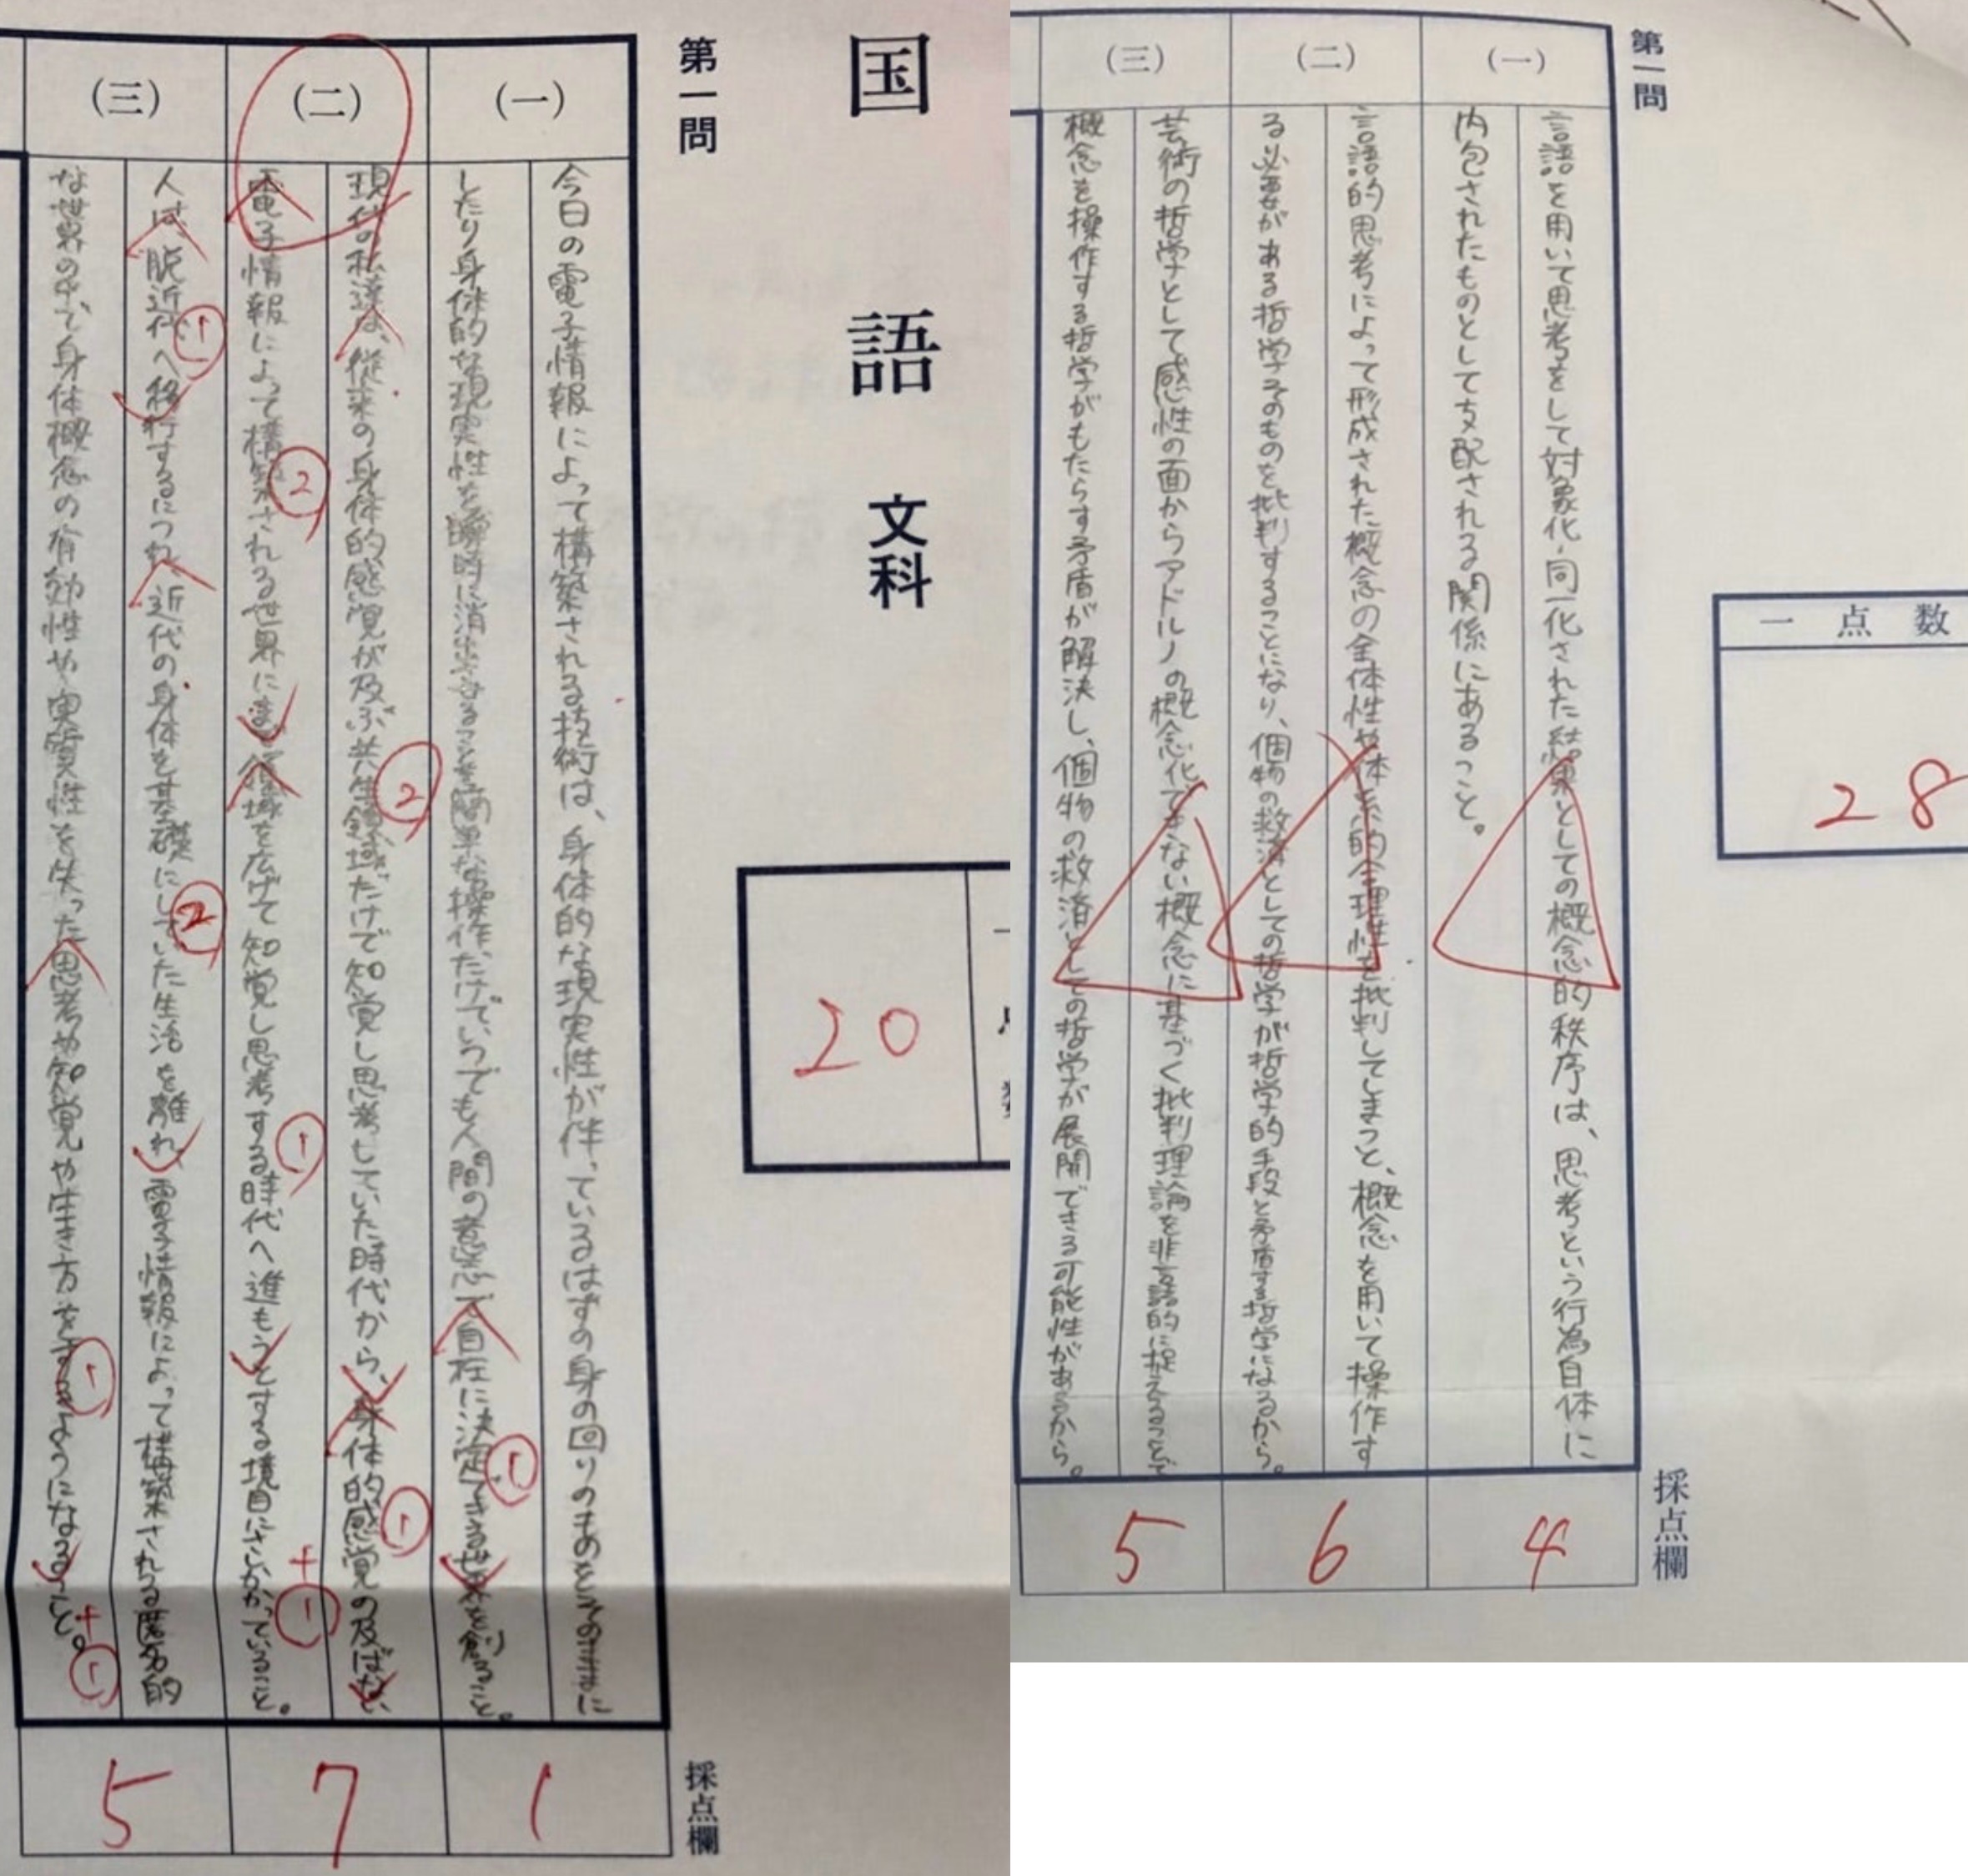 国語 文科
第一問
(一)
今日の電子情報によって構築される技術は、身体的な現実性が伴っているはずの身の回りのものをそのままに
したり身体的な現実性を瞬時に消失させることを簡単な操作だけでいつでも人間の意志で自在に決定できる世界を創ること。
1
(二)
現代の私達は、従来の身体的感覚が及ぶ共生領域だけで知覚し思考していた時代から、身体的感覚の及ばない
電子情報によって構築される世界にまで領域を広げて知覚し思考する時代へ進もうとする境目にさしかかっていること。
② ② ① ① +①
7
(三)
人は、脱近代へ移行するにつれ、近代の身体を基礎にしていた生活を離れ、電子情報によって構築される匿名的
な世界の中で身体概念の有効性や実質性を失った思考や知覚や生き方をするようになること。
① ② ① +①
5
採点欄
20
第一問
(一)
言語を用いて思考をして対象化・同一化された結果としての概念的秩序は、思考という行為自体に
内包されたものとして支配される関係にあること。
4
(二)
言語的思考によって形成された概念の全体性や体系的合理性を批判してしまうと、概念を用いて操作す
る必要がある哲学そのものを批判することになり、個物の救済としての哲学が哲学的手段と矛盾する哲学になるから。
6
(三)
芸術の哲学として感性の面からアドルノの概念化できない概念に基づく批判理論を非言語的に捉えることで
概念を操作する哲学がもたらす矛盾が解決し、個物の救済としての哲学が展開できる可能性があるから。
5
採点欄
一 点 数
28